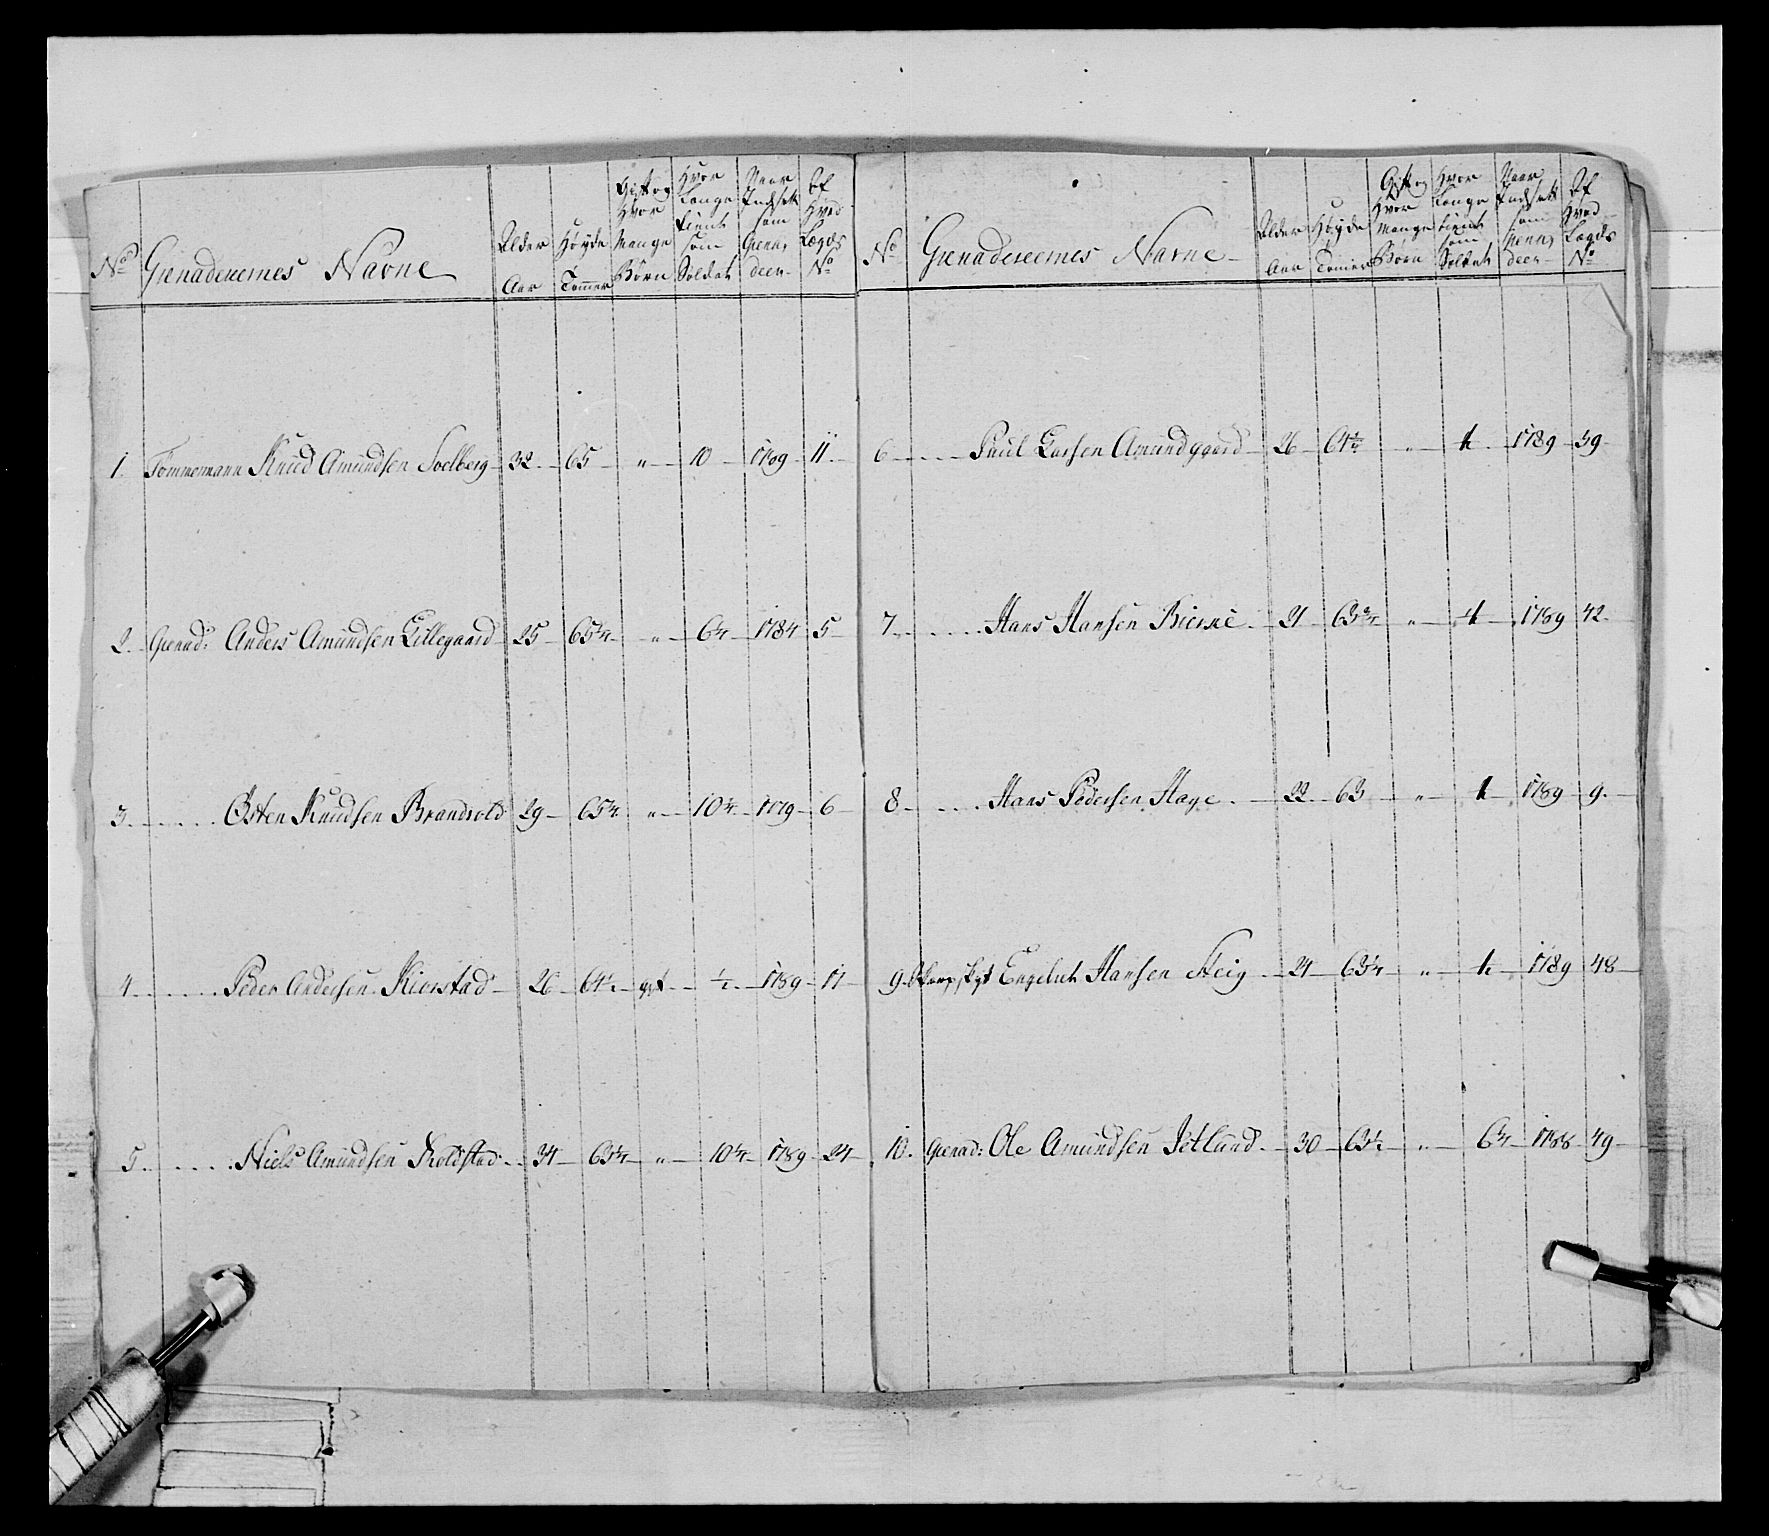 No Grenadeernes Navne Alder Aar Høyde Tommer Gift og Hvor Mange Børn Hvor Længe tient som Soldat Naar Indsatt som Grenadeer Af Hvad Lægds No
1. Tømmermann Knud Amundsen Soelberg 32 65 " 10 1789 11
2. Grenad: Anders Amundsen Lillegaard 25 65¼ " 6¼ 1784 5
3. Østen Knudsen Brandvold 29 65¼ " 10¼ 1779 6
4. Peder Andersen Kiorstad 26 64½ gift ½ 1789 17
5. Niels Amundsen Koldstad 34 63¼ " 10¼ 1789 24
No Grenadeernes Navne Alder Aar Høyde Tomer Gift og Hvor Mange Børn Hvor Længe tient som Soldat Naar Indsatt som Grenadeer Af Hvad Lægds No
6 Paul Larsen Amundgaard 26 64½ " 1789 39
7. Hans Hansen Bierne 21 63¾ " 1789 42
8 Hans Pedersen Hage 22 63 " 1789 9
9 Engebret Hansen Steig 24 63¼ " 1789 48
10. Grenad: Ole Amundsen Jetlund 30 63½ " 6¼ 1788 49